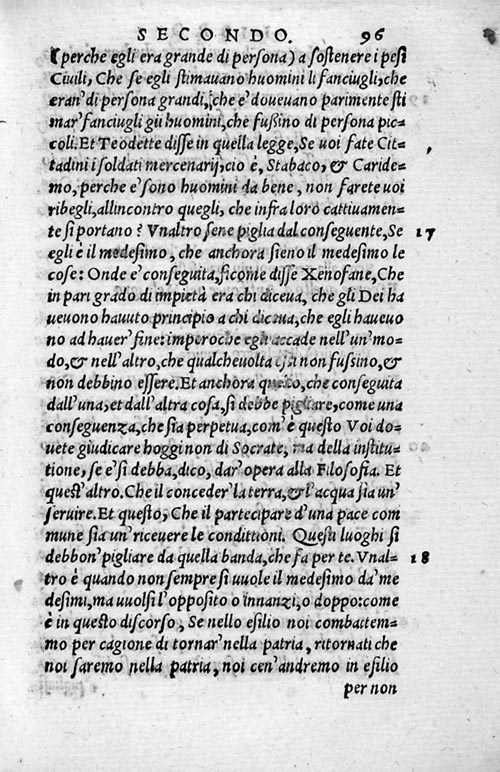 SECONDO. 96
(perche egli era grande di persona) a sostenere i pesi
Ciuili, Che se egli stimauano huomini li fanciugli, che
eran' di persona grandi, che e' doueuano parimente sti
mar' fanciugli gli huomini, che fußino di persona pic=
coli. Et Teodette disse in quella legge, Se uoi fate Cit=
tadini i soldati mercenarij, cio è, Stabaco, & Caride=
mo, perche e' sono huomini da bene, non farete uoi
ribegli, allincontro quegli, che infra loro cattiuamen=
te si portano? Vnaltro se ne piglia dal conseguente, Se 17
egli è il medesimo, che anchora sieno il medesimo le
cose: Onde e' conseguita, si come disse Xenofane, Che
in pari grado di impietà era chi diceua, che gli Dei ha
ueuono hauuto principio a chi diceua, che egli haueuo
no ad hauer' fine: imperoche egli accade nell'un' mo=
do, & nell'altro, che qualche uolta essi non fußino, &
non debbino essere. Et anchora questo, che conseguita
dall'una, et dall'altra cosa, si debbe pigliare, come una
conseguenza, che sia perpetua, com' è questo Voi do=
uete giudicare hoggi non di Socrate, ma della institu=
tione, se e' si debba, dico, dar' opera alla Filosofia. Et
quest' altro. Che il conceder' la terra, & l'acqua sia un'
seruire. Et questo, Che il partecipare d'una pace com
mune sia un' riceuere le conditioni. Questi luoghi si
debbon' pigliare da quella banda, che fa per te. Vnal= 18
tro è quando non sempre si uuole il medesimo da' me
desimi, ma uuolsi l'opposito o innanzi, o doppo: come
è in questo discorso, Se nello esilio noi combattem=
mo per cagione di tornar' nella patria, ritornati che
noi saremo nella patria, noi cen' andremo in esilio
per non